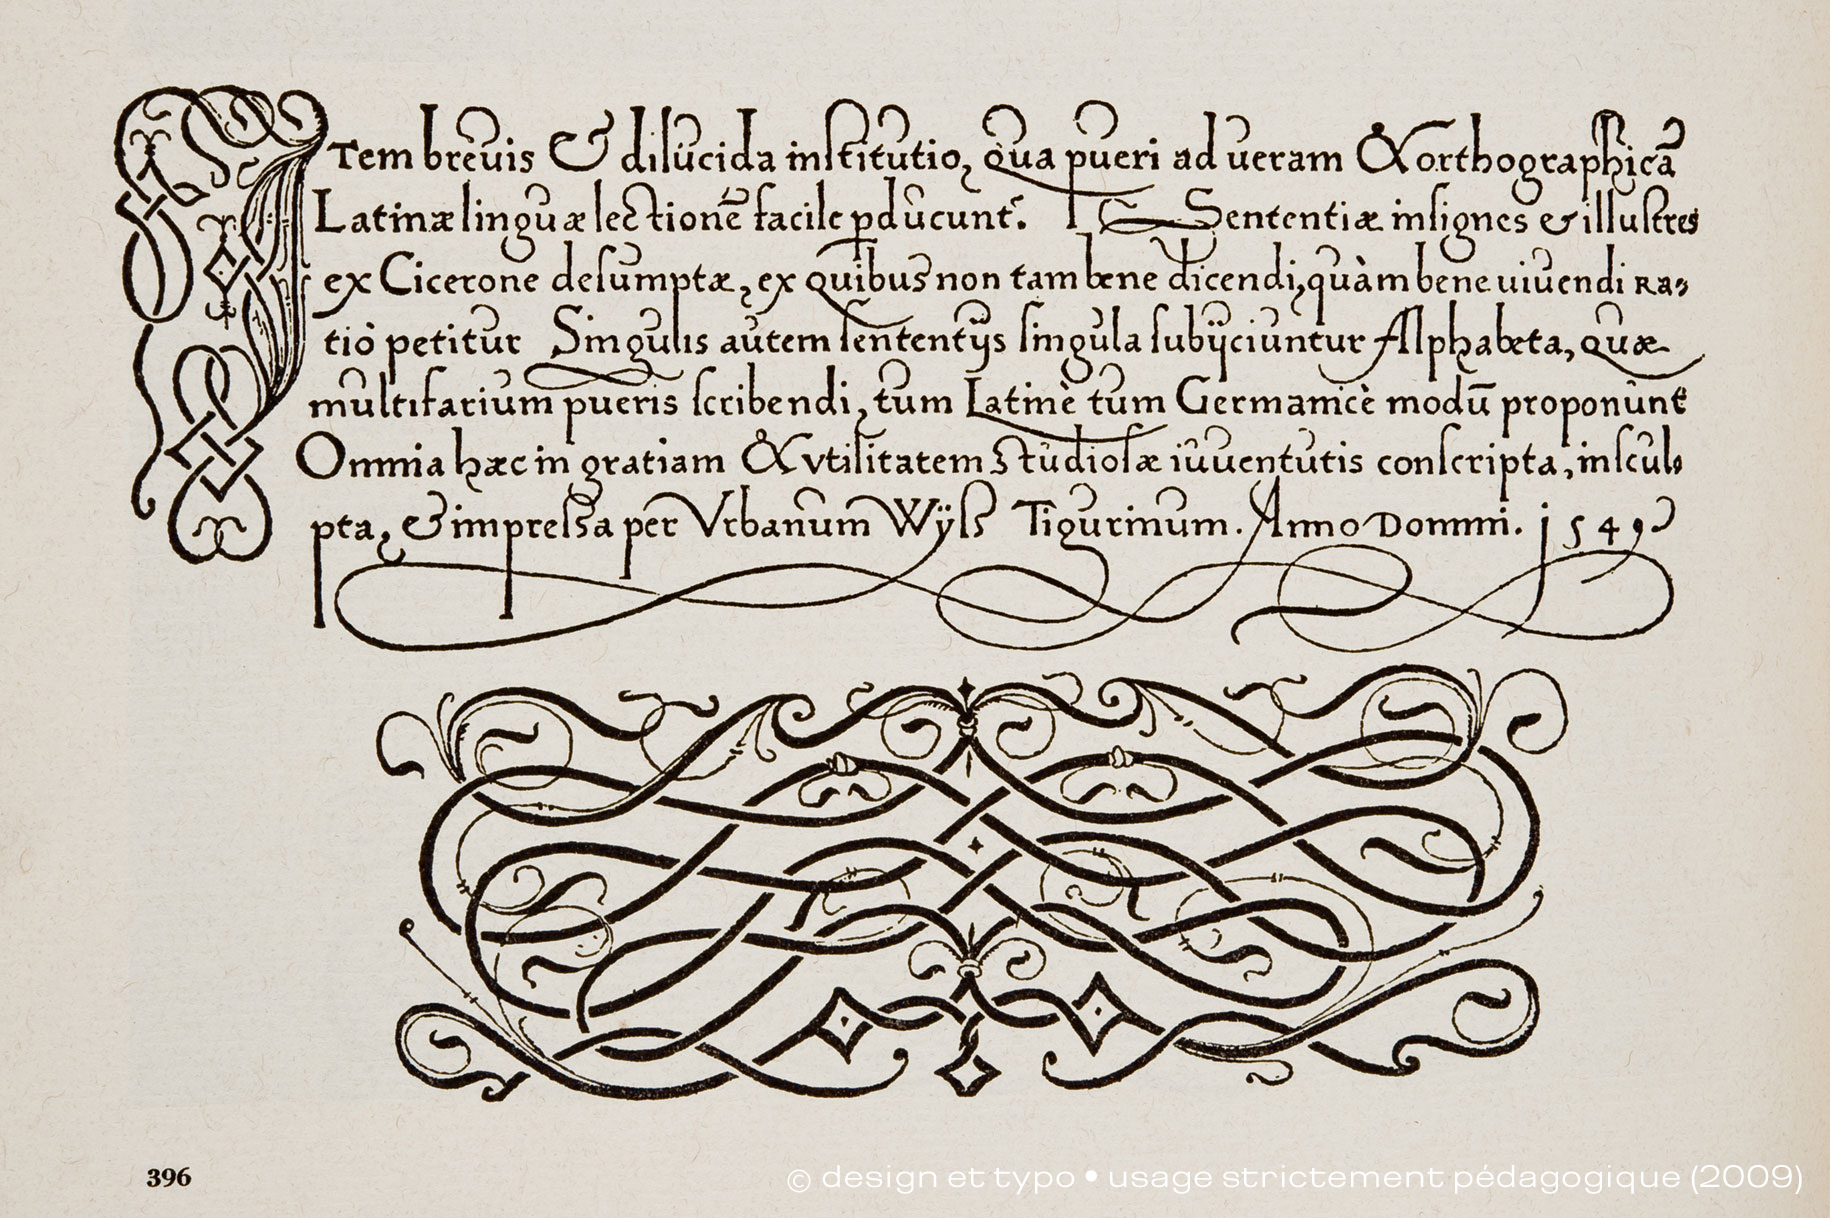 ITem breuis & dilucida inſtitutio, qua pueri ad ueram & orthographicã
Latinæ linguæ lectionẽ facile ꝓducunt͛. Sententiæ inſignes & illuſtres
ex Cicerone deſumptæ, ex quibus non tam bene dicendi, quàm bene uiuendi ra-
tio petitur Singulis autem ſententijs ſingula ſubijciuntur Alphabeta, quæ
multifarium pueris ſcribendi, tum Latinè tum Germanicè modũ proponunt
Omnia hæc in gratiam & vtilitatem ſtudioſæ iuuentutis conſcripta, inſcul-
pta, & impreſſa per Vrbanum Wyſſ Tigurinum. Anno Domini. 1549
396
© design et typo • usage strictement pédagogique (2009)